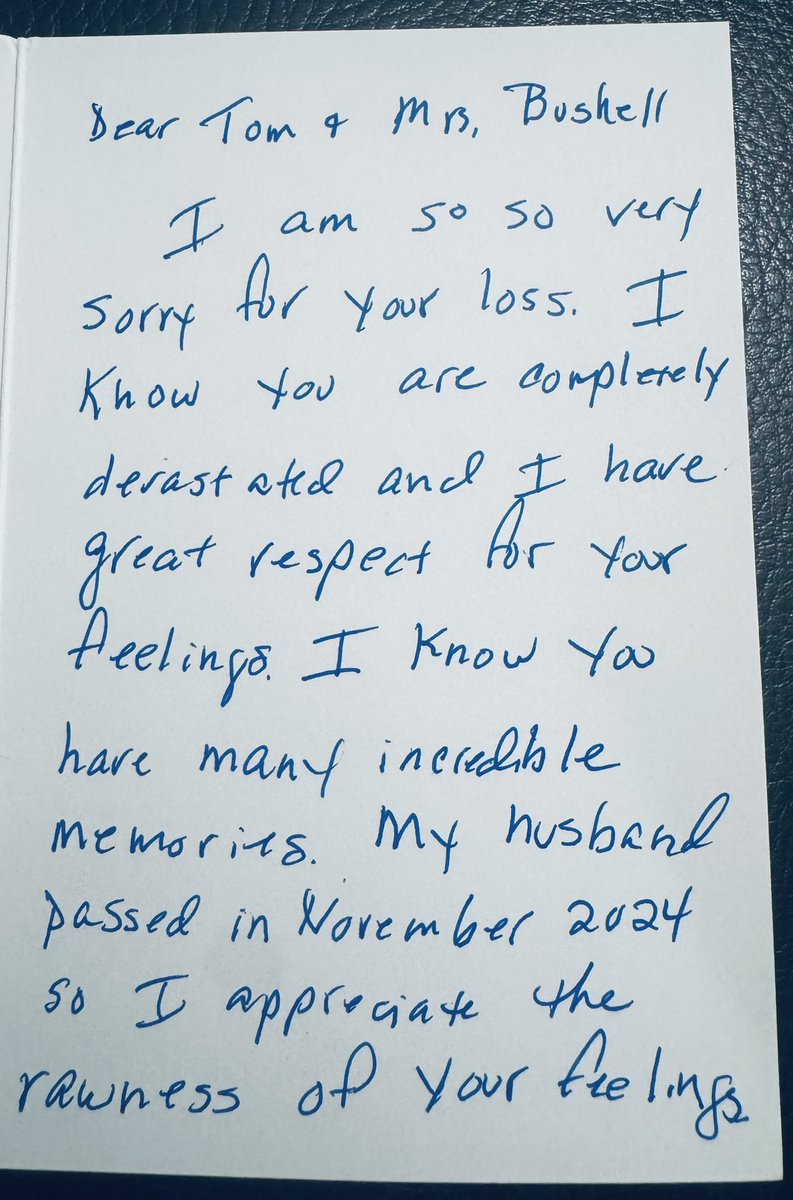 Dear Tom & Mrs. Bushell
I am so so very
sorry for your loss. I
know you are completely
devastated and I have
great respect for your
feelings. I know you
have many incredible
memories. My husband
passed in November 2024
so I appreciate the
rawness of your feelings